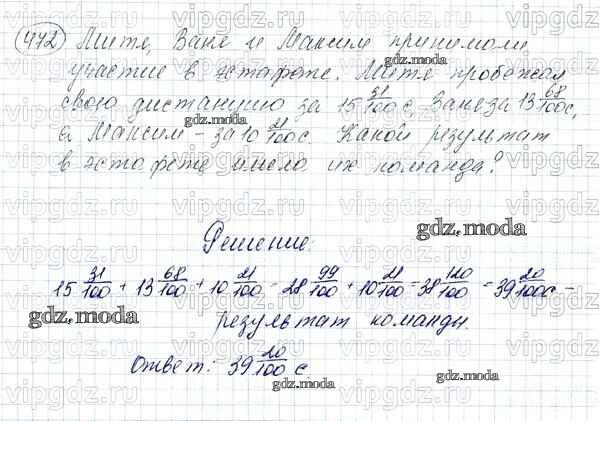 472 Митя, Ваня и Максим принимали
участие в эстафете. Митя пробежал
свою дистанцию за 15 31/100 с, Ваня за 13 68/100 с,
а Максим – за 10 21/100 с. Какой результат
в эстафете имела их команда?
Решение:
15 31/100 + 13 68/100 + 10 21/100 = 28 99/100 + 10 21/100 = 38 120/100 = 39 20/100 с –
результат команды.
Ответ: 39 20/100 с.
gdz.moda
vipgdz.ru